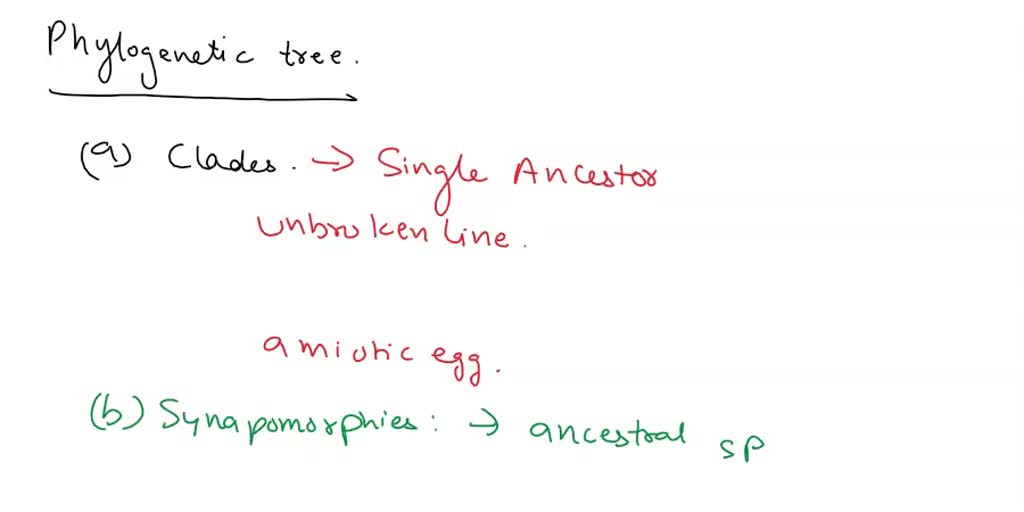 Phylogenetic tree.
(a) Clades. → Single Ancestor
unbroken line.
amiotic egg.
(b) Synapomorphies: → ancestral sp